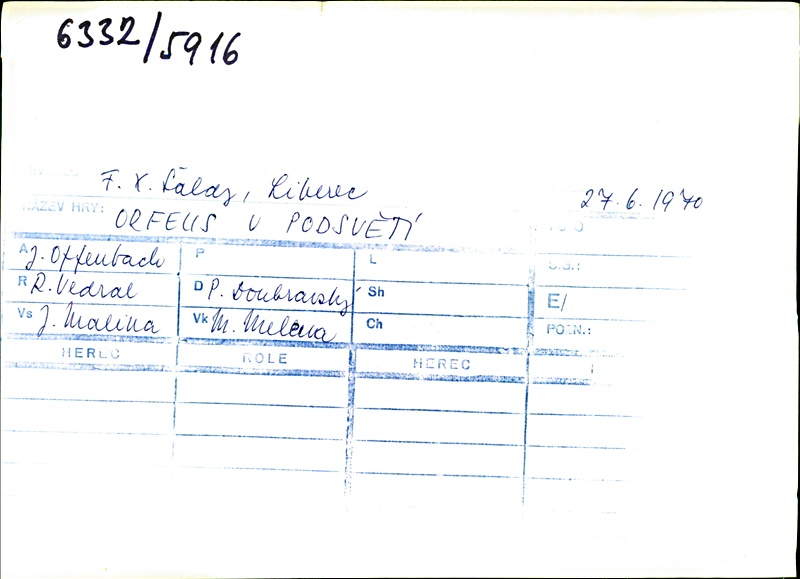 6332/5916
F. X. Šaldy, Liberec 27.6.1970
NÁZEV HRY: ORFEUS V PODSVĚTÍ
A J. Offenbach P L
R R. Vedral D P. Doubravský Sh E/
Vs J. Malina Vk M. Melena Ch POZN.:
HEREC ROLE HEREC